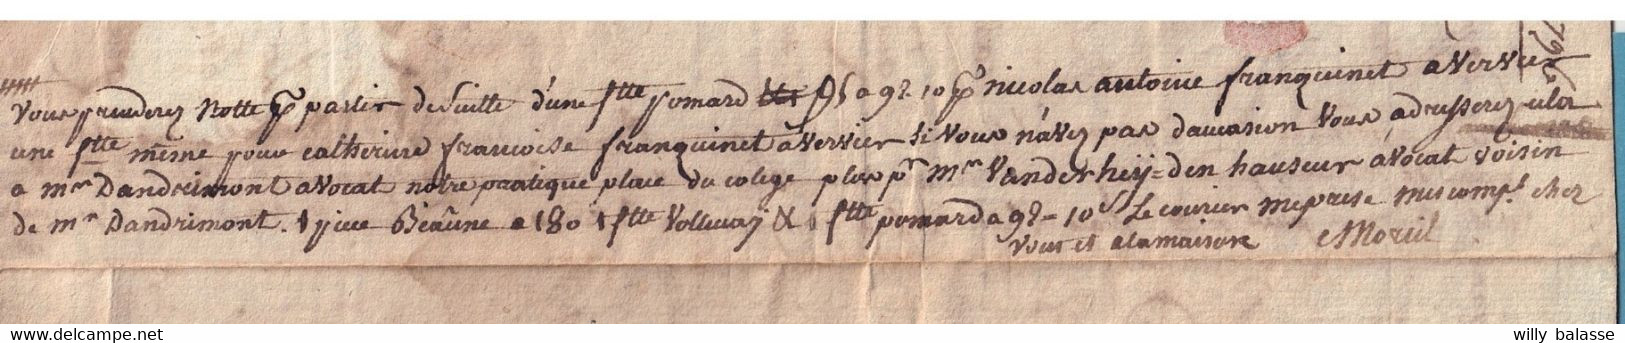 Vous prenderez Notte pr partir de suitte d'une ftte pomard a 92 10 pr nicolas antoine franquinet a Vervier
une ftte même pour catherine francoise franquinet a Vervier si Vous n'avez pas daucasion Vous adresserez
a mr Dandrimont avocat notre pratique place du colege plus pr mr Vanderheÿ=den hauseur avocat voisin
de mr Dandrimont. 1 piece Beaûne a 180 1 ftte Vollenay & 1 ftte pomard a 92 - 10 s Le courier meprese mes compl. chez
vous et a la maison Moreil
delcampe.net
willy balasse